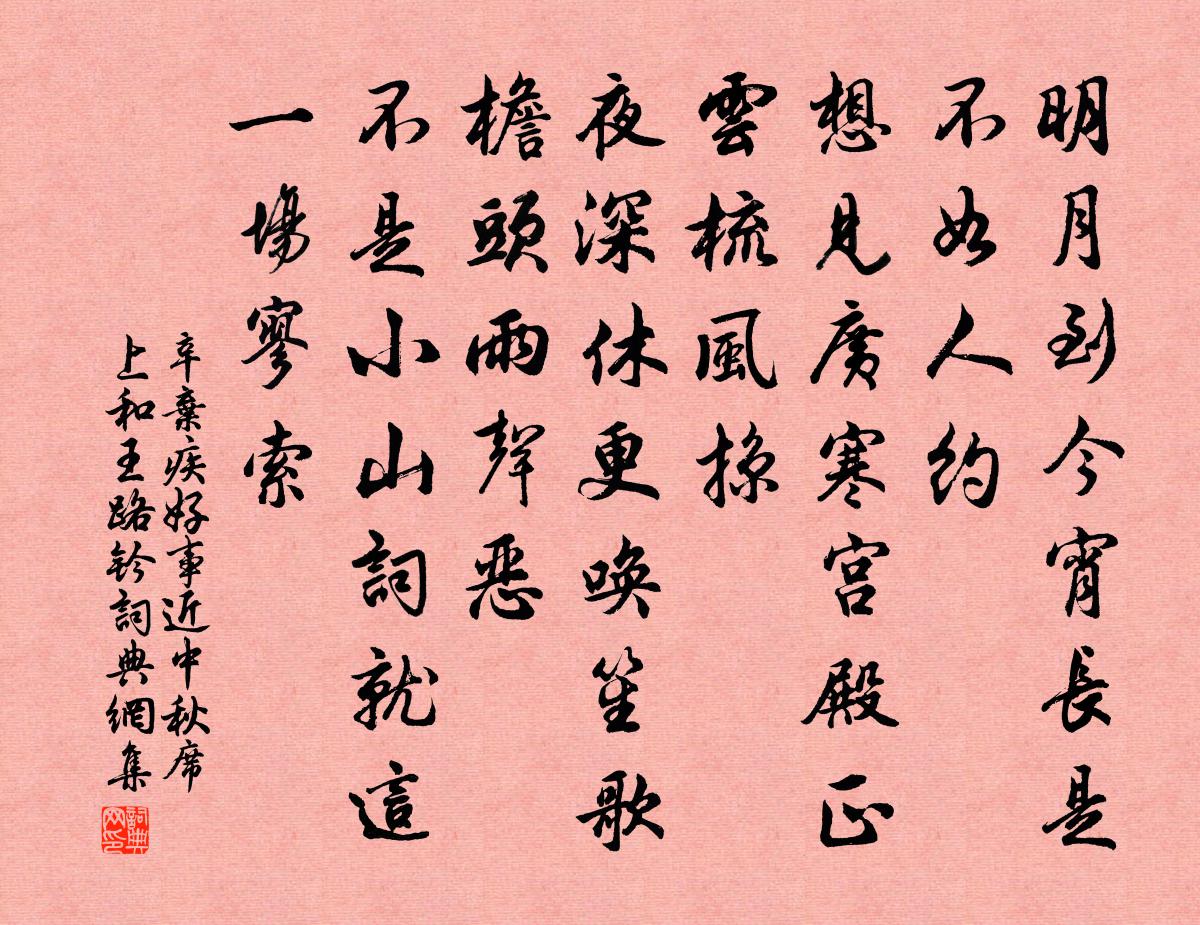 明月到今宵長是
不如人約
想見廣寒宮殿正
雲梳風掠
夜深休更喚笙歌
檐頭雨聲惡
不是小山詞就這
一場寥索
辛棄疾好事近中秋席
上和王路鈐詞典網集
詞典
网印